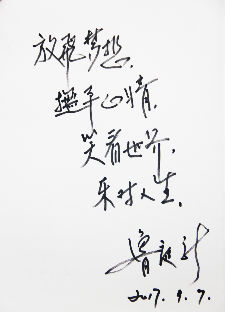 放飞梦想.
抚平心情.
笑看世界.
乐对人生.
2017.9.7.